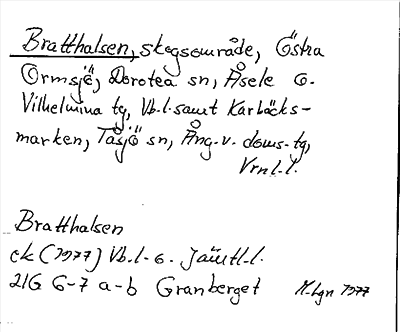 Bratthalsen, skogsområde, Östra
Ormsjö, Dorotea sn, Åsele o.
Vilhelmina tg, Vb.l. samt Karbäcks-
marken, Tåsjö sn, Ång. v. doms. tg,
Vrnl. l.
Bratthalsen
ek (1977) Vb.l - o. Jämtl.l.
21G 6-7 a-b Granberget
1977